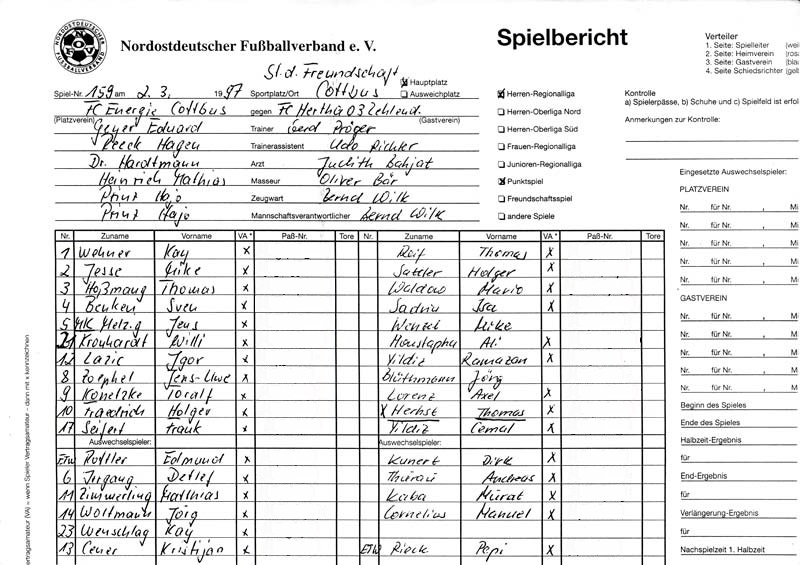 NORDOSTDEUTSCHER FUSSBALLVERBAND
NOFV
Nordostdeutscher Fußballverband e. V.
Spielbericht
Verteiler
1. Seite: Spielleiter
2. Seite: Heimverein
3. Seite: Gastverein
4. Seite Schiedsrichter
St. d. Freundschaft
Hauptplatz
Spiel-Nr. 159 am 2. 3. 1997 Sportplatz/Ort Cottbus Ausweichplatz
FC Energie Cottbus gegen FC Hertha 03 Zehlend.
(Platzverein) (Gastverein)
Geyer Eduard Trainer Gerd Pröger
Reeck Hagen Trainerassistent Udo Richter
Dr. Hardtmann Arzt Judith Bahjat
Heinrich Mathias Masseur Oliver Bär
Prinz Hajo Zeugwart Bernd Wilk
Prinz Hajo Mannschaftsverantwortlicher Bernd Wilk
Herren-Regionalliga
Herren-Oberliga Nord
Herren-Oberliga Süd
Frauen-Regionalliga
Junioren-Regionalliga
Punktspiel
Freundschaftsspiel
andere Spiele
Kontrolle
a) Spielerpässe, b) Schuhe und c) Spielfeld ist erfol
Anmerkungen zur Kontrolle:
Nr. Zuname Vorname VA * Paß-Nr. Tore Nr. Zuname Vorname VA * Paß-Nr. Tore
1 Wehner Kay x Reif Thomas x
2 Jesse Mike x Sattler Holger x
3 Hoßmang Thomas x Waldow Mario x
4 Benken Sven x Sadriu Isa x
5 MK Melzig Jens x Wenzel Mike
21 Kronhardt Willi x Moustapha Ali x
12 Lazic Igor x Yildiz Ramazan x
8 Zoephel Jens-Uwe x Blüthmann Jörg
9 Konetzke Toralf x Lorenz Axel x
10 Friedrich Holger x x Herbst Thomas x
17 Seifert Frank x Yildiz Cemal x
Auswechselspieler: Auswechselspieler:
ETW Rottler Edmund x Kunert Dirk x
6 Irrgang Detlef x Thurau Andreas x
11 Zimmerling Matthias x Kaba Murat x
14 Woltmann Jörg x Cornelius Manuel x
23 Wenschlag Kay x
13 Cener Kristijan x ETW Rieck Pepi x
Eingesetzte Auswechselspieler:
PLATZVEREIN
Nr. für Nr. , Mi
Nr. für Nr. , Mi
Nr. für Nr. , Mi
Nr. für Nr. , Mi
Nr. für Nr. , Mi
GASTVEREIN
Nr. für Nr. , Mi
Nr. für Nr. , Mi
Nr. für Nr. , Mi
Nr. für Nr. , Mi
Nr. für Nr. , Mi
Beginn des Spieles
Ende des Spieles
Halbzeit-Ergebnis
für
End-Ergebnis
für
Verlängerung-Ergebnis
für
Nachspielzeit 1. Halbzeit
ertragsamateur (VA) = wenn Spieler Vertragsamateur - dann mit x kennzeichnen